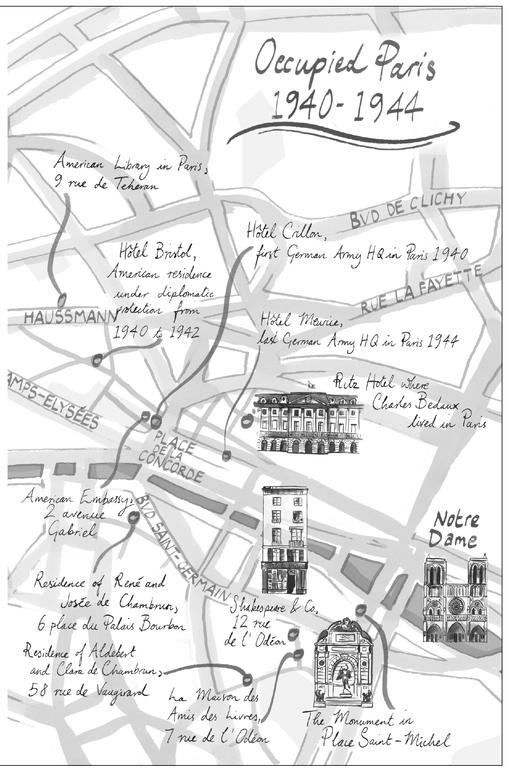 Occupied Paris
1940-1944
American Library in Paris,
9 rue de Teheran
BVD DE CLICHY
Hôtel Crillon,
first German Army HQ in Paris 1940
Hôtel Bristol,
American residence
under diplomatic
protection from
1940 to 1942
RUE LA FAYETTE
HAUSSMANN
Hôtel Meurice,
last German Army HQ in Paris 1944
Ritz Hotel where
Charles Bedaux
lived in Paris
AMPS-ELYSÉES
PLACE
DE LA
CONCORDE
American Embassy,
2 avenue
Gabriel
BVD SAINT-GERMAIN
Notre
Dame
Residence of René and
Josée de Chambrun,
6 place du Palais Bourbon
Shakespeare & Co,
12 rue
de l'Odéon
Residence of Aldebert
and Clara de Chambrun,
58 rue de Vaugirard
La Maison des
Amis des Livres,
7 rue de l'Odéon
The Monument in
Place Saint-Michel